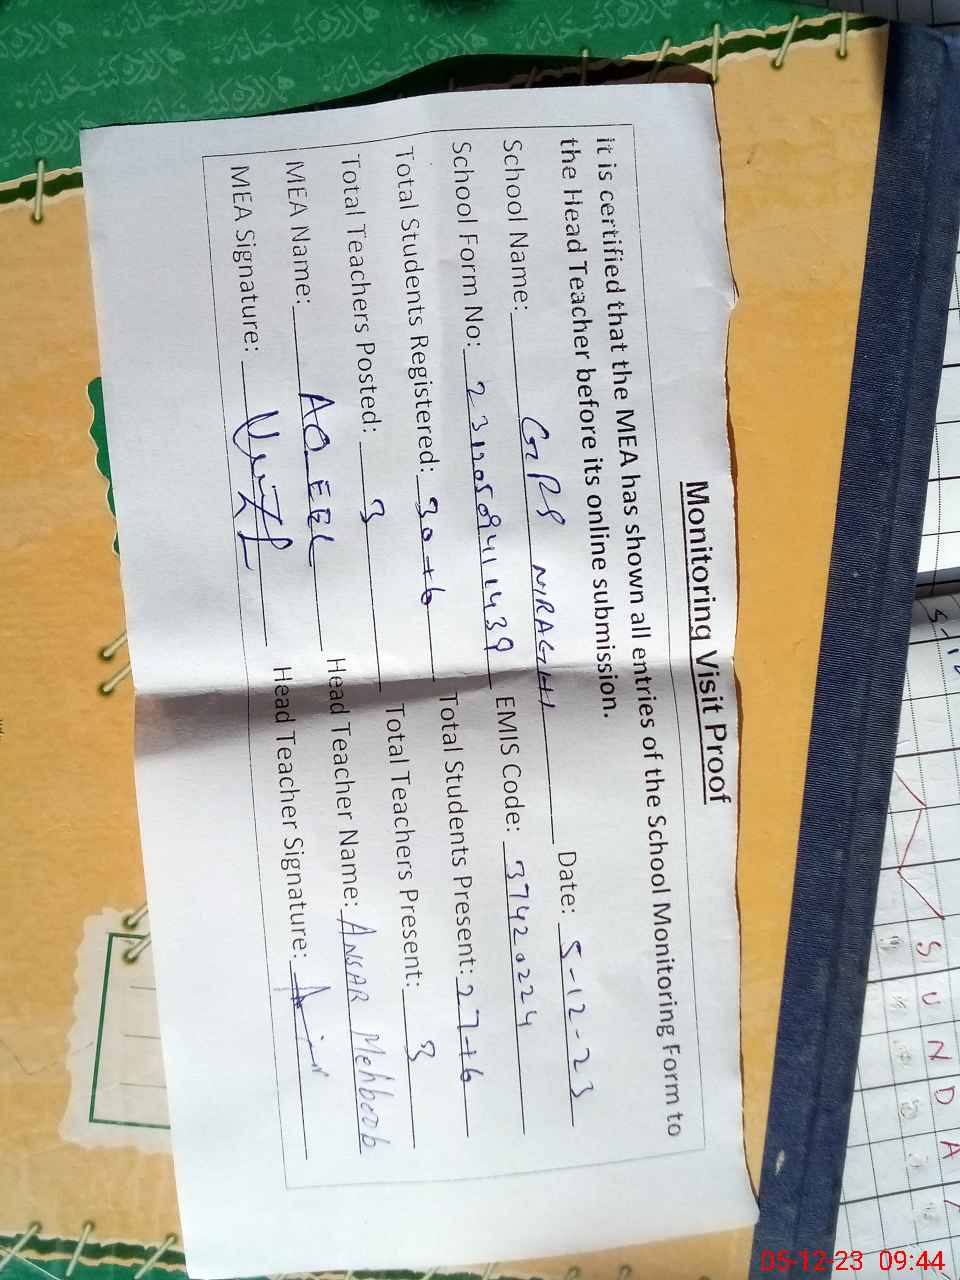 Monitoring Visit Proof
it is certified that the MEA has shown all entries of the School Monitoring Form to
the Head Teacher before its online submission.
School Name: GPS NIRAGHI Date: 5-12-23
School Form No: EMIS Code: 37420224
Total Students Registered: 30+6 Total Students Present: 27+6
Total Teachers Posted: 3 Total Teachers Present: 3
MEA Name: AQEEL Head Teacher Name: ANSAR Mehboob
MEA Signature: Head Teacher Signature:
SUNDAY
05-12-23 09:44